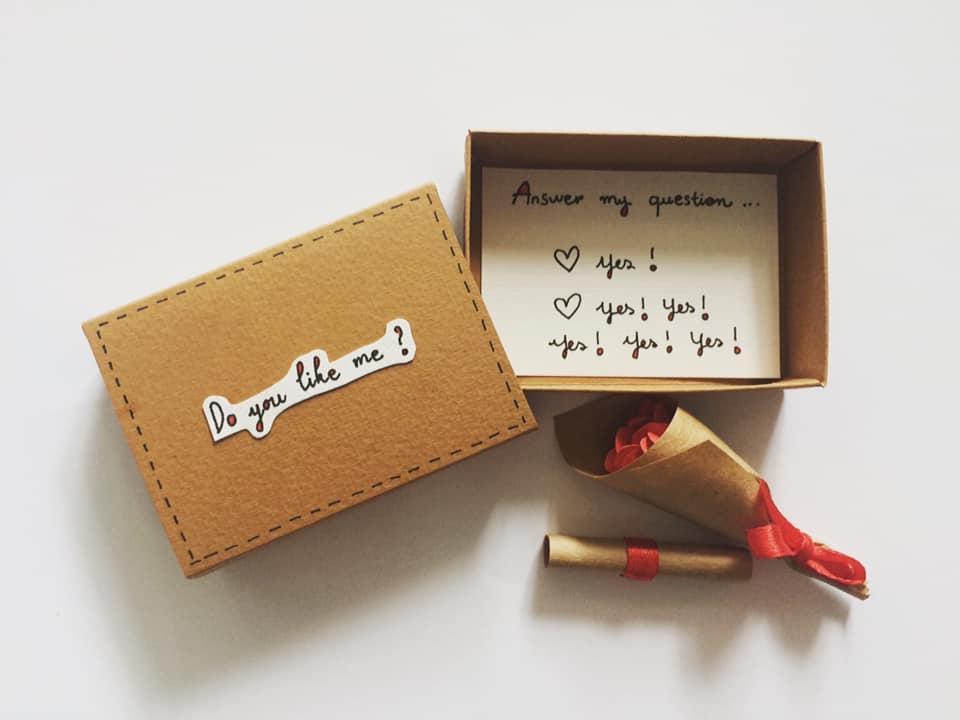 Do you like me ?
Answer my question ...
yes !
yes! yes!
yes! yes! yes!